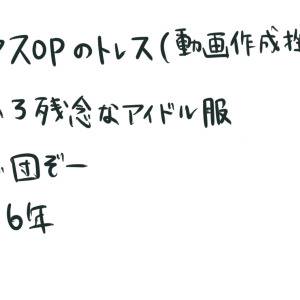 アスOPのトレス(動画作成挫
いろ残念なアイドル服
い団ぞー
6年